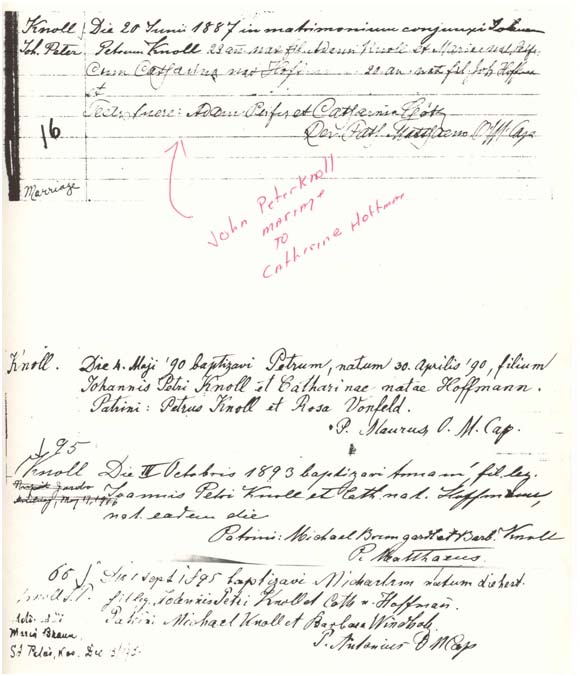 Knoll Die 20 Junii 1887 in matrimonium conjunxi
Joh. Peter Petrum Knoll 22 an nat fil Adami Knoll et Mariae nat
Cum Catharina nat 20 an nat fil Joh Hoffman
et
Testes fuere: Adam et Catharina
Rev. Path. Cap
16
Marriage
John Peter Knoll
marriage
TO
Catherine Hoffman
Knoll. Die 4. Maji '90 baptizavi Petrum, natum 30. Aprilis '90, filium
Johannis Petri Knoll et Catharinae natae Hoffmann.
Patrini: Petrus Knoll et Rosa Vonfeld.
P. Maurus, O. M. Cap.
95
Knoll Die III Octobris 1893 baptizavi Annam, fil. leg.
Joannis Petri Knoll et Cath. nat. Hoffmann,
nat. eadem die
Patrini: Michael et Barb. Knoll
P. Matthaeus.
66 Die 1 sept 1895 baptizavi Michaelem natum die
fil leg. Joannis Petri Knoll et Cath n. Hoffman.
Patrini Michael Knoll et Barbara Windholz
P. Antonius O M Cap
Maria Braun
St Peter, Kas. Dec